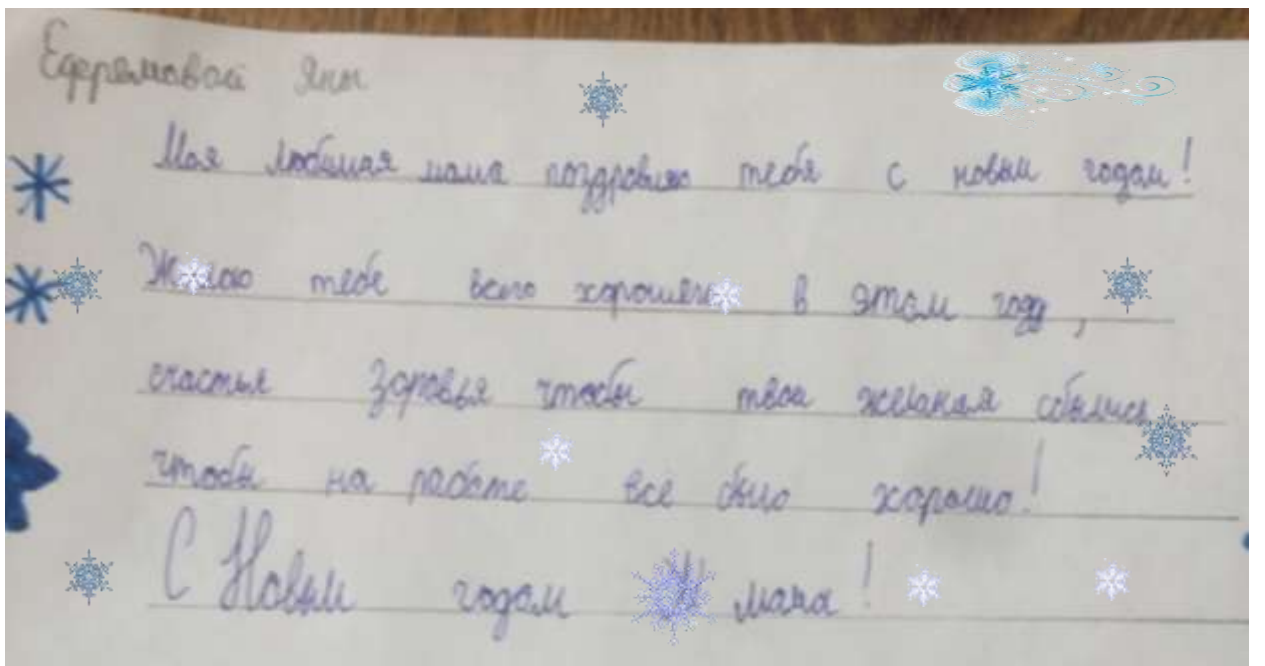 Ефремовой Яны
Моя любимая мама поздровляю тебя с новым годом!
Желаю тебе всего хорошего в этом году,
счастья здоровья чтобы твои желания сбылись
чтобы на работе все было хорошо!
С Новым годом мама!